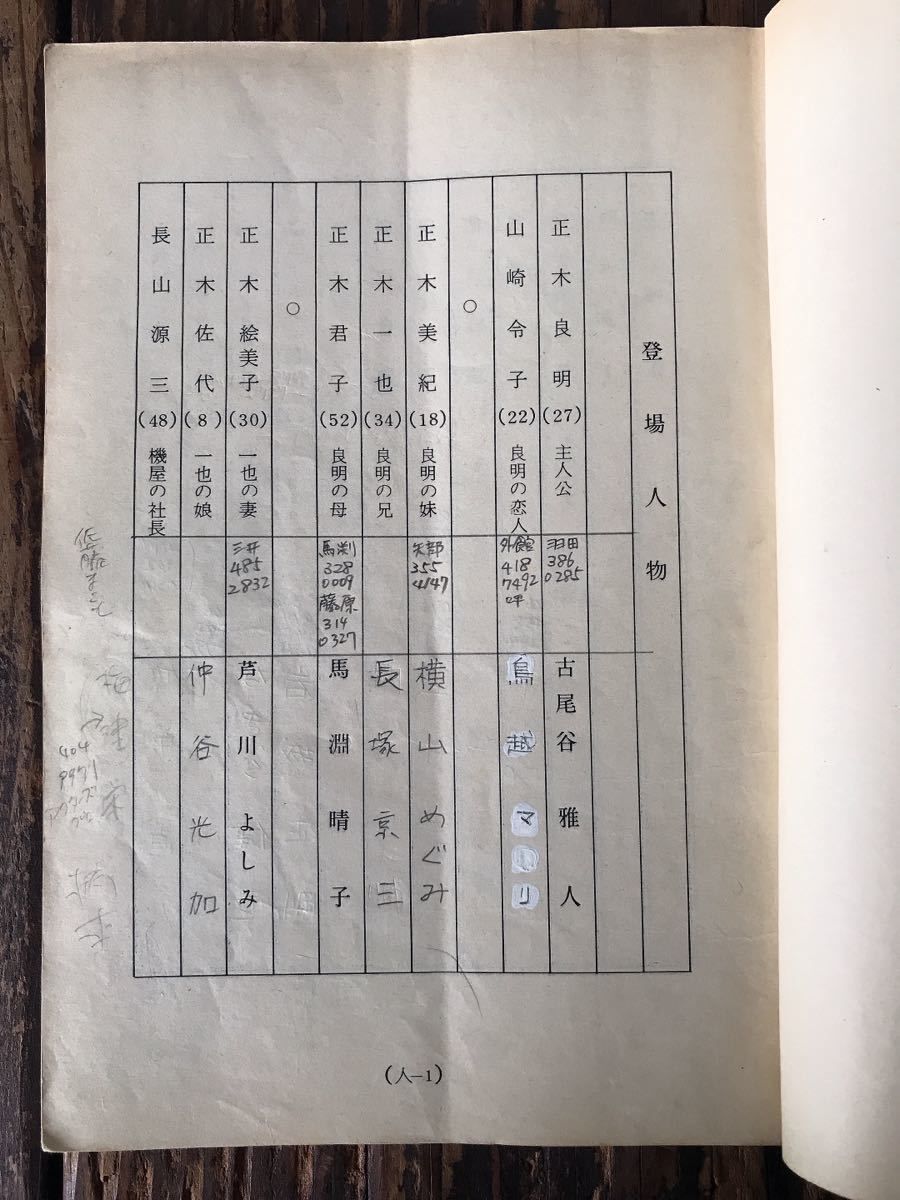 登場人物
正木良明(27)主人公
羽田
386
0285
古尾谷雅人
山崎令子(22)良明の恋人
外館
418
7492
呼
鳥越マリ
○
正木美紀(18)良明の妹
矢部
355
4147
横山めぐみ
正木一也(34)良明の兄
長塚京三
正木君子(52)良明の母
馬渕
328
0009
藤原
314
0327
馬淵晴子
○
正木絵美子(30)一也の妻
三井
485
2832
芦川よしみ
正木佐代(8)一也の娘
仲谷光加
長山源三(48)機屋の社長
佐藤
404
9971
(人―1)